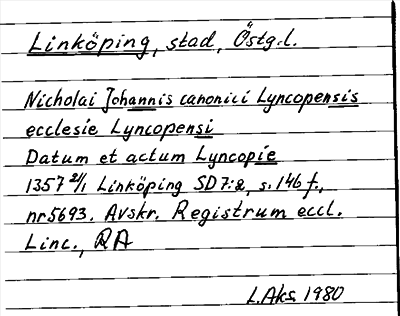 Linköping, stad, Östg.l.
Nicholai Johannis canonici Lyncopensis
ecclesie Lyncopensi
Datum et actum Lyncopie
1357 2/1 Linköping SD 7:2, s. 146 f.,
nr 5693. Avskr. Registrum eccl.
Linc., RA
L.Aks. 1980